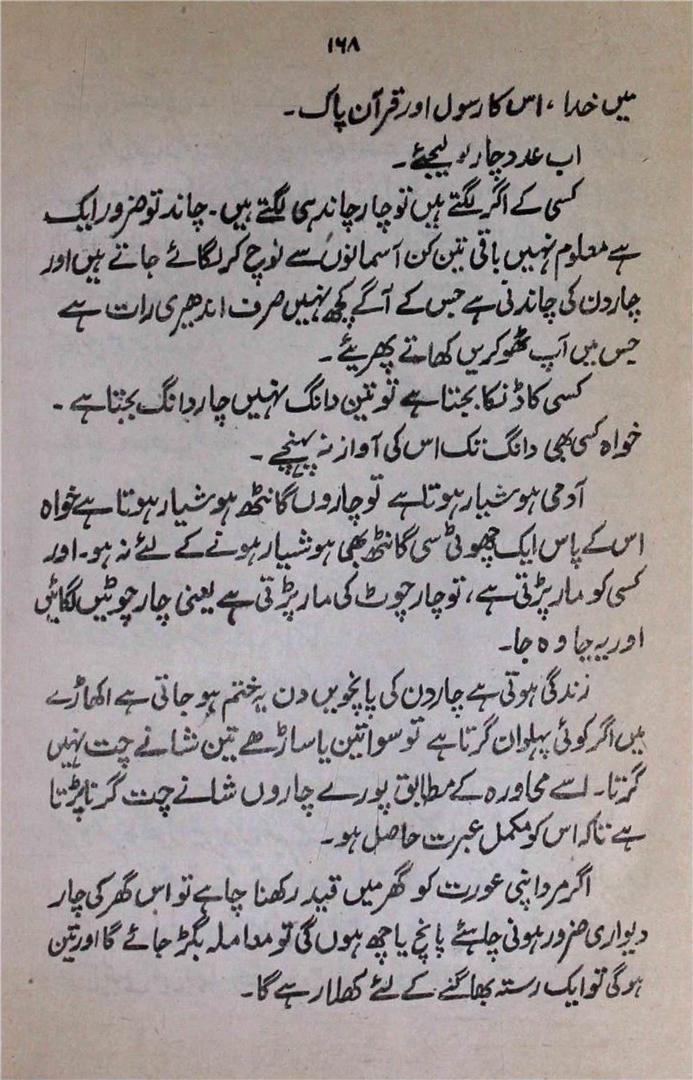 ۱۶۸
میں خدا، اس کا رسول اور قرآن پاک۔
اب عدد چار لو لیجئے۔
کسی کے اگر لگتے ہیں تو چار چاند ہی لگتے ہیں۔ چاند تو ضرور ایک
ہے معلوم نہیں باقی تین کن آسمانوں سے نوچ کر لگائے جاتے ہیں اور
چار دن کی چاندنی ہے جس کے آگے کچھ نہیں صرف اندھیری رات ہے
جس میں آپ ٹھوکریں کھاتے پھریئے۔
کسی کا ڈنکا بجتا ہے تو تین دانگ نہیں چار دانگ بجتا ہے۔
خواہ کسی بھی دانگ تک اس کی آواز نہ پہنچے۔
آدمی ہوشیار ہوتا ہے تو چاروں گانٹھ ہوشیار ہوتا ہے خواہ
اس کے پاس ایک چھوٹی سی گانٹھ بھی ہوشیار ہونے کے لئے نہ ہو۔ اور
کسی کو مار پڑتی ہے، تو چار چوٹ کی مار پڑتی ہے یعنی چار چوٹیں لگائیں
اور یہ جا وہ جا۔
زندگی ہوتی ہے چار دن کی پانچویں دن یہ ختم ہو جاتی ہے اکھاڑے
میں اگر کوئی پہلوان گرتا ہے تو سوا تین یا ساڑھے تین شانے چت نہیں
گرتا۔ اسے محاورہ کے مطابق پورے چاروں شانے چت گرنا پڑتا
ہے تاکہ اس کو مکمل عبرت حاصل ہو۔
اگر مرد اپنی عورت کو گھر میں قید رکھنا چاہے تو اس گھر کی چار
دیواری ضرور ہونی چاہئے پانچ یا چھ ہوں گی تو معاملہ بگڑ جائے گا اور تین
ہوگی تو ایک رستہ بھاگنے کے لئے کھلا رہے گا۔